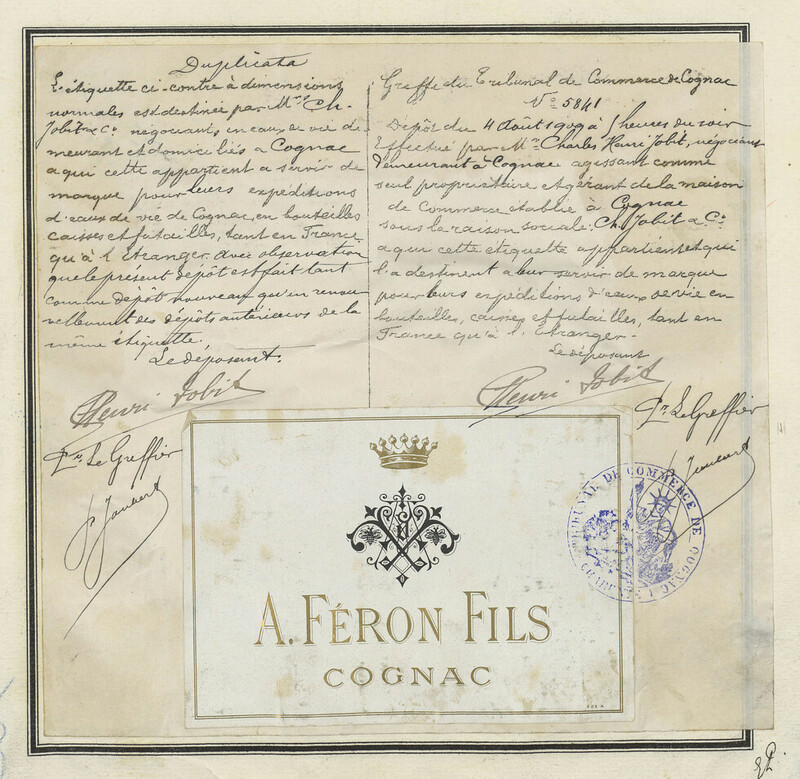 Duplicata
L'étiquette ci-contre à dimensions
normales est destinée par Mrs Ch.
Jobit & Co négociants en eaux de vie de
meurant et domiciliés à Cognac
a qui cette appartient a servir de
marque pour leurs expéditions
d'eaux de vie de Cognac, en bouteilles
caisses et futailles, tant en France
qu'à l'Etranger avec observation
que le présent dépôt est fait tant
comme dépôt nouveau qu'en renou-
vellement des dépôts antérieurs de la
même étiquette.
Le déposant.
Henri Jobit
Pr Le Greffier
Greffe du Tribunal de Commerce de Cognac
No 5841
Dépôt du 4 Août 1909 à heures du soir
Effectué par Mr Charles Henri Jobit, négociant
demeurant à Cognac agissant comme
seul propriétaire et gérant de la maison
de Commerce établie à Cognac
sous la raison sociale: Ch. Jobit & Co
a qui cette étiquette appartient et qui
l'a destinent a leur servir de marque
pour leurs expéditions d'eaux de vie en
bouteilles, caisses et futailles, tant en
France qu'à l'Etranger.
Le déposant
Henri Jobit
Pr Le Greffier
TRIBUNAL DE COMMERCE DE COGNAC
CHARENTE
A. FÉRON FILS
COGNAC